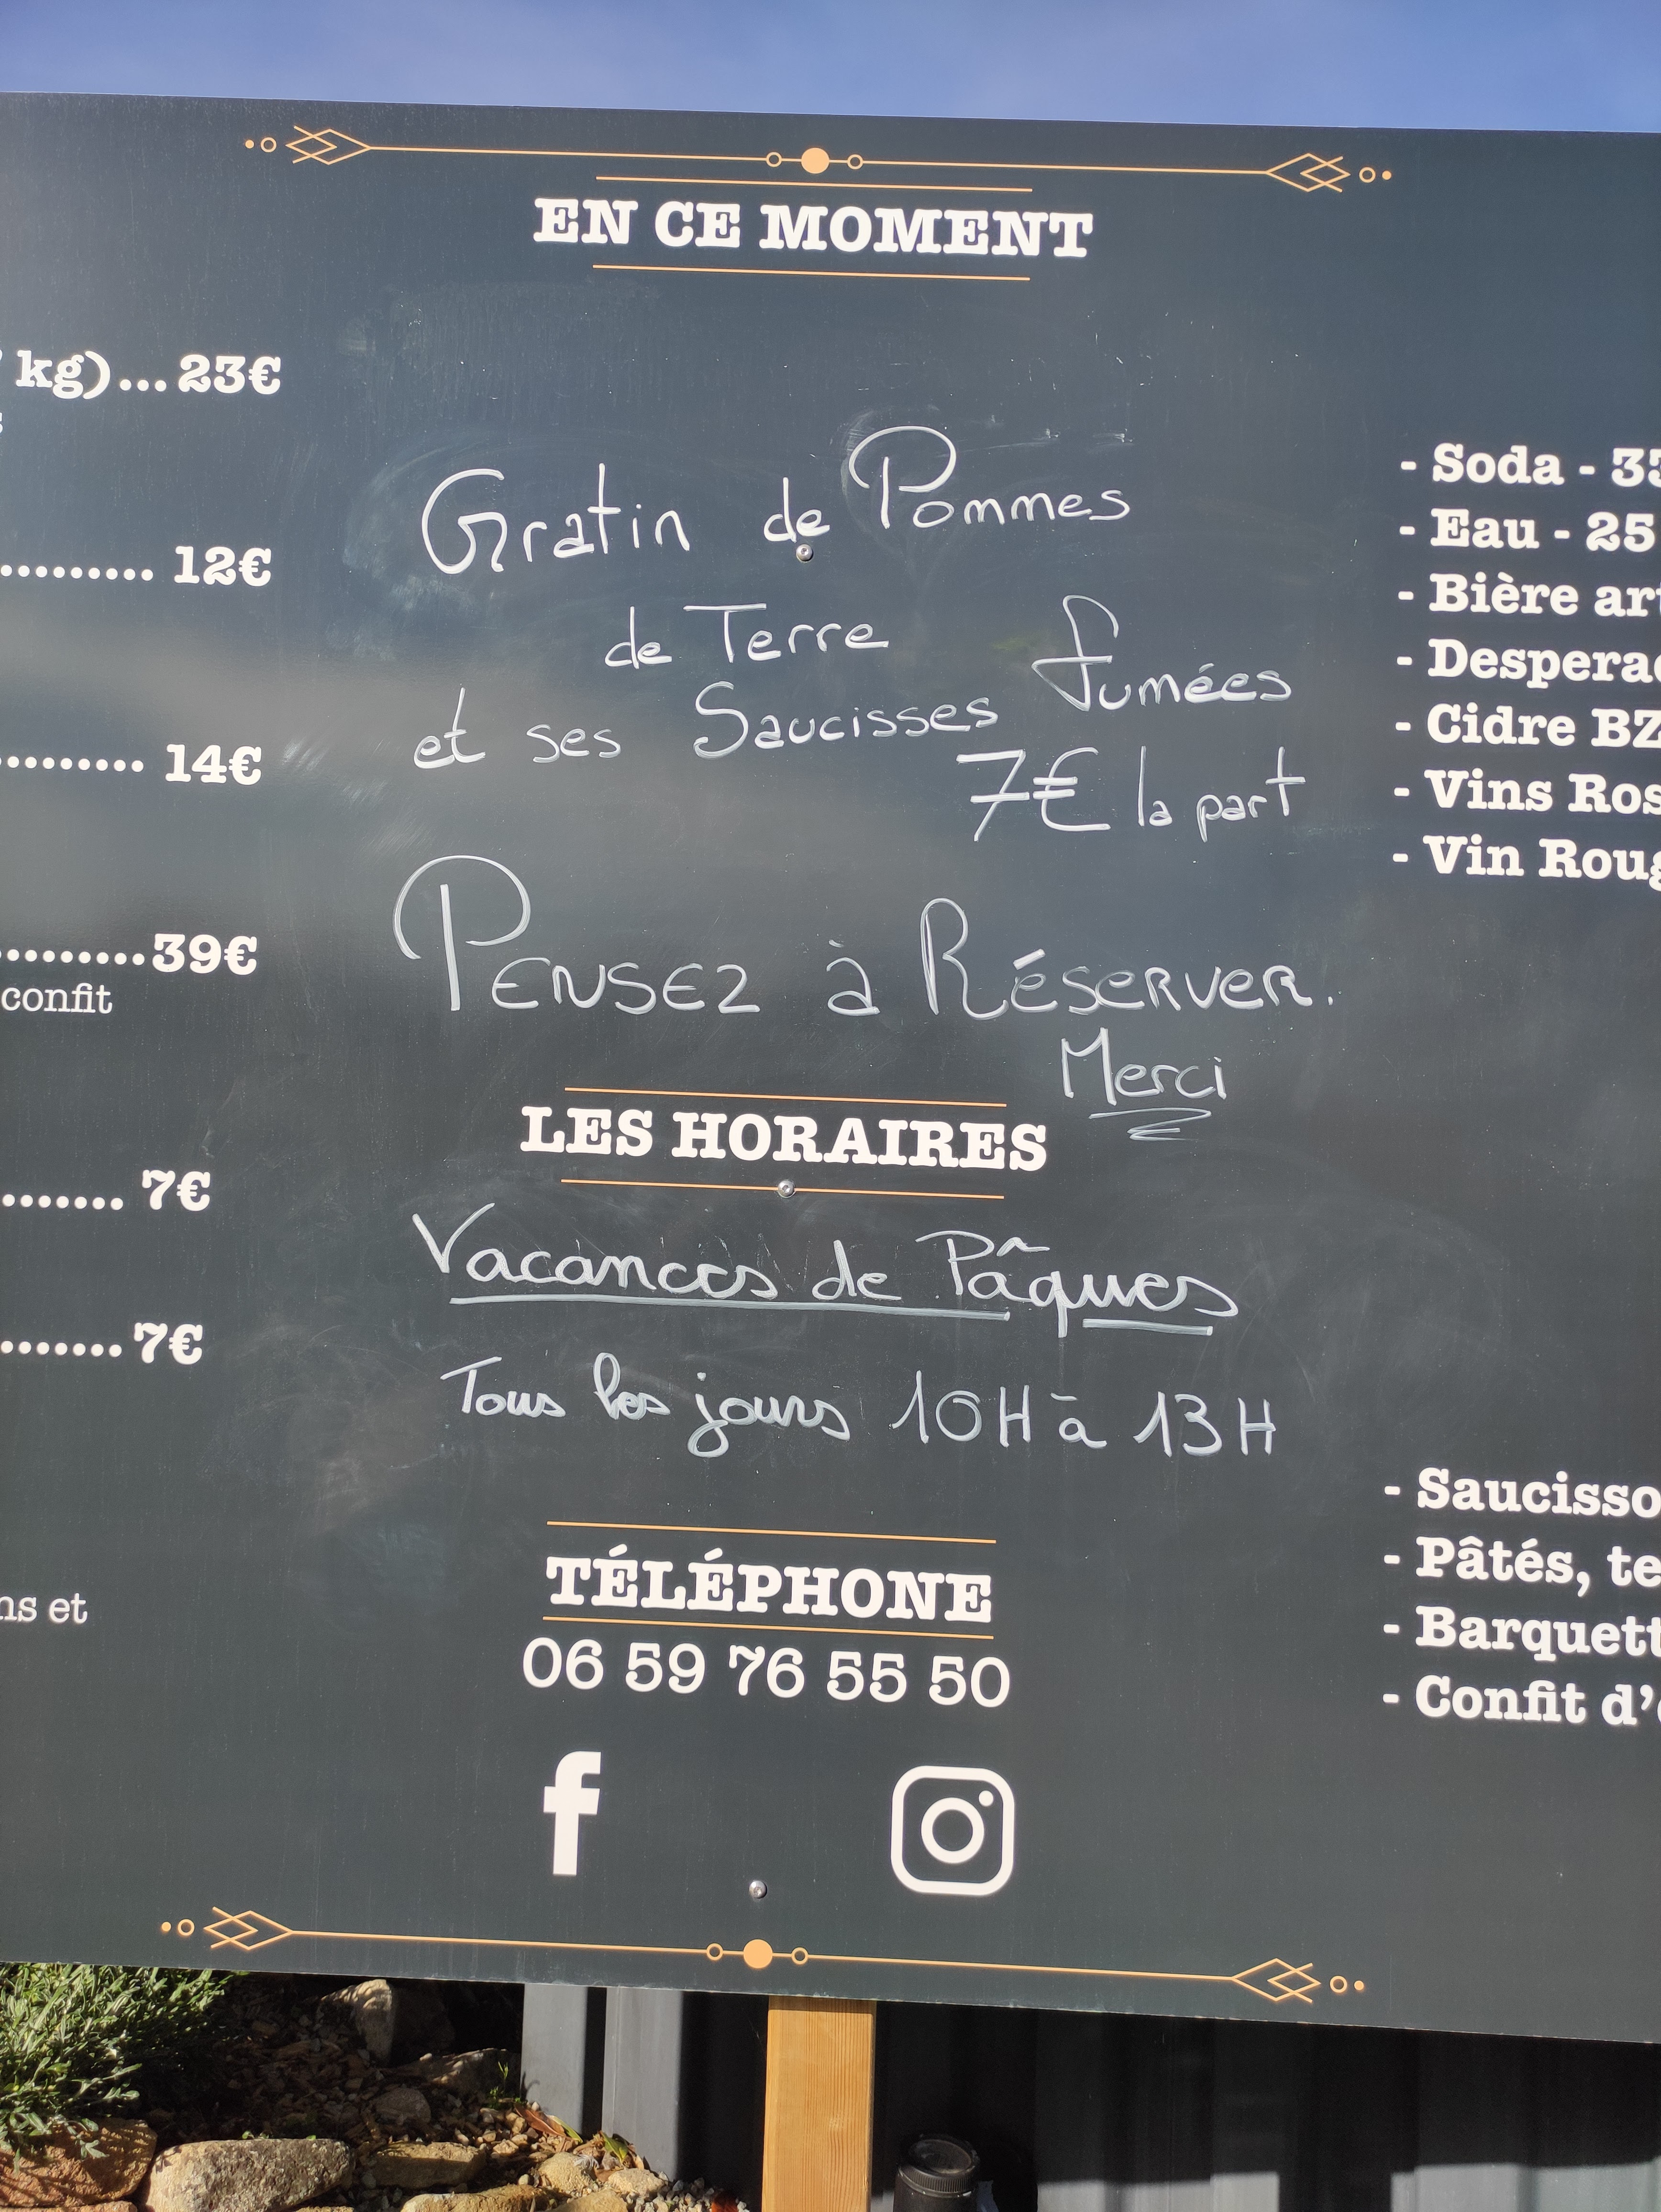 EN CE MOMENT
kg)...23€
......... 12€
......... 14€
.........39€
confit
....... 7€
....... 7€
ns et
Gratin de Pommes
de Terre
et ses Saucisses fumées
7€ la part
PENSEZ à RéSERVER.
Merci
LES HORAIRES
Vacances de Pâques
Tous les jours 10H à 13H
TÉLÉPHONE
06 59 76 55 50
- Soda - 33
- Eau - 25
- Bière art
- Desperad
- Cidre BZ
- Vins Ros
- Vin Roug
- Saucisso
- Pâtés, te
- Barquett
- Confit d'